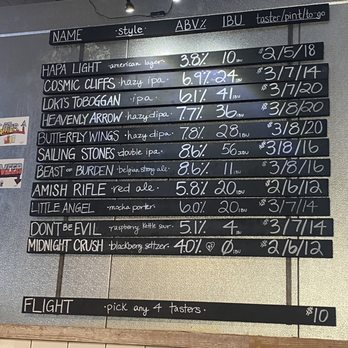 NAME ·style· ABV% IBU taster/pint/to go
HAPA LIGHT ·american lager· 3.8% 10 IBU $2/5/18
COSMIC CLIFFS ·hazy ipa· 6.9% 24 IBU $3/7/14
LOKI'S TOBOGGAN ·ipa· 6.1% 41 IBU $3/7/20
HEAVENLY ARROW ·hazy dipa· 7.7% 36 IBU $3/8/20
BUTTERFLY WINGS ·hazy dipa· 7.8% 28 IBU $3/8/20
SAILING STONES ·double ipa· 8.6% 56 IBU $3/8/16
BEAST OF BURDEN ·belgian strong ale· 8.6% 11 IBU $3/8/16
AMISH RIFLE ·red ale· 5.8% 20 IBU $2/6/12
LITTLE ANGEL ·mocha porter· 6.0% 20 IBU $3/7/14
DON'T BE EVIL ·raspberry kettle sour· 5.1% 4 IBU $3/7/14
MIDNIGHT CRUSH ·blackberry seltzer· 4.0% Ø IBU $2/6/12
FLIGHT ·pick any 4 tasters· $10